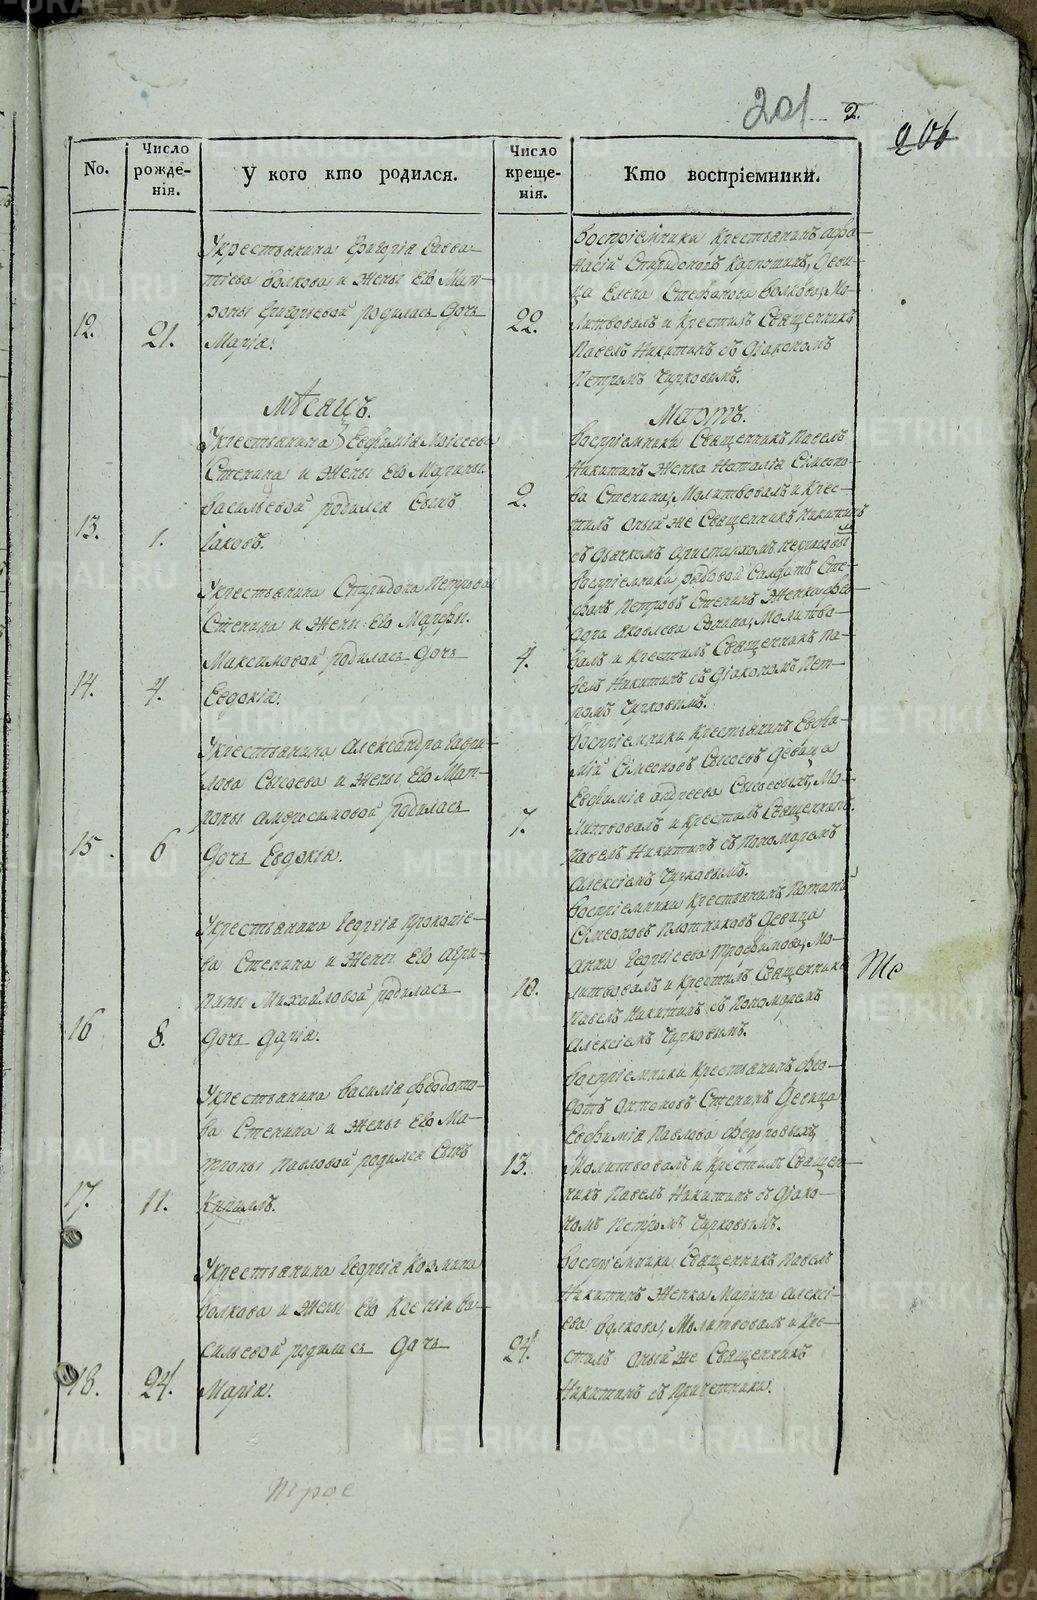 201
2.
206
No.
Число рожде-нія.
У кого кто родился.
Число креще-нія.
Кто воспріемники.
12.
21.
Укрестьянина Григорія Савва-
тіева Волкова и Жены Его Мат-
роны Григорьевой родилась Дочь
Марія.
22.
Воспріемники Крестьянинъ Афо-
насій Спиридоновъ Девиця
ца Елена Стефанова Волкова, Мо-
литвовалъ и Крестилъ Священникъ
Павелъ Никитинъ съ Діакономъ
Петромъ Чирковымъ.
Мѣсяцъ.
Мартъ.
13.
1.
Укрестьянина Евфимія Моісеева
Стенина и Жены Его Марины
Васильевой родился Сынъ
Іаковъ.
2.
Воспріемники Священникъ Павелъ
Никитинъ Женка Наталія Сімеоно-
ва Стенина, Молитвовалъ и Крес-
тилъ оный же Священникъ Никитинъ
съ Дьячкомъ Аристархомъ
14.
4.
Укрестьянина Спиридона Петрова
Стенина и Жены Его Марфы
Максимовой родилась Дочь
Евдокія.
4.
Воспріемники рядовой Салдатъ Сте-
фанъ Петровъ Стенинъ Женка Фео-
дора Яковлева Молитво-
валъ и Крестилъ Священникъ Па-
велъ Никитинъ съ Діакономъ Пет-
ромъ Чирковымъ.
15.
6
Укрестьянина Александра Гаври-
лова Сысоева и Жены Его Мат-
роны Амфосимовой родилась
Дочь Евдокія.
7.
Воспріемники Крестьянинъ Евфи-
мій Сімеоновъ Сысоевъ Девица
Евфимія Андреева Сысоевыхъ, Мо-
литвовалъ и Крестилъ Священникъ
Павелъ Никитинъ съ Пономаремъ
Алексіемъ Чирковымъ.
16
8.
Укрестьянина Георгія Прокопіе-
ва Стенина и Жены Его Агри-
пины Михайловой родилась
Дочь Дарія.
10.
Воспріемники Крестьянинъ Потапій
Сімеоновъ Плотниковъ Девица
Анна Георгіева Трофимова, Мо-
литвовалъ и Крестилъ Священникъ
Павелъ Никитинъ съ Пономаремъ
Алексіемъ Чирковымъ.
17.
11.
Укрестьянина Василія Федото-
ва Стенина и Жены Его Ма-
троны Павловой родился Сынъ
Кирилъ.
13.
Воспріемники Крестьянинъ Фео-
дотъ Антоновъ Стенинъ Девица
Евфимія Павлова Федоровыхъ,
Молитвовалъ и Крестилъ Священ-
никъ Павелъ Никитинъ съ Діако-
номъ Петромъ Чирковымъ.
18.
24.
Укрестьянина Георгія Козмина
Волкова и Жены Его Ксеніи Ва-
сильевой родилась Дочь
Марія.
24.
Воспріемники Священникъ Павелъ
Никитинъ Женка Марина Алексі-
ева Волкова, Молитвовалъ и Кре-
стилъ оный же Священникъ
Никитинъ съ Причетники.
METRIKI.GASO-URAL.RU